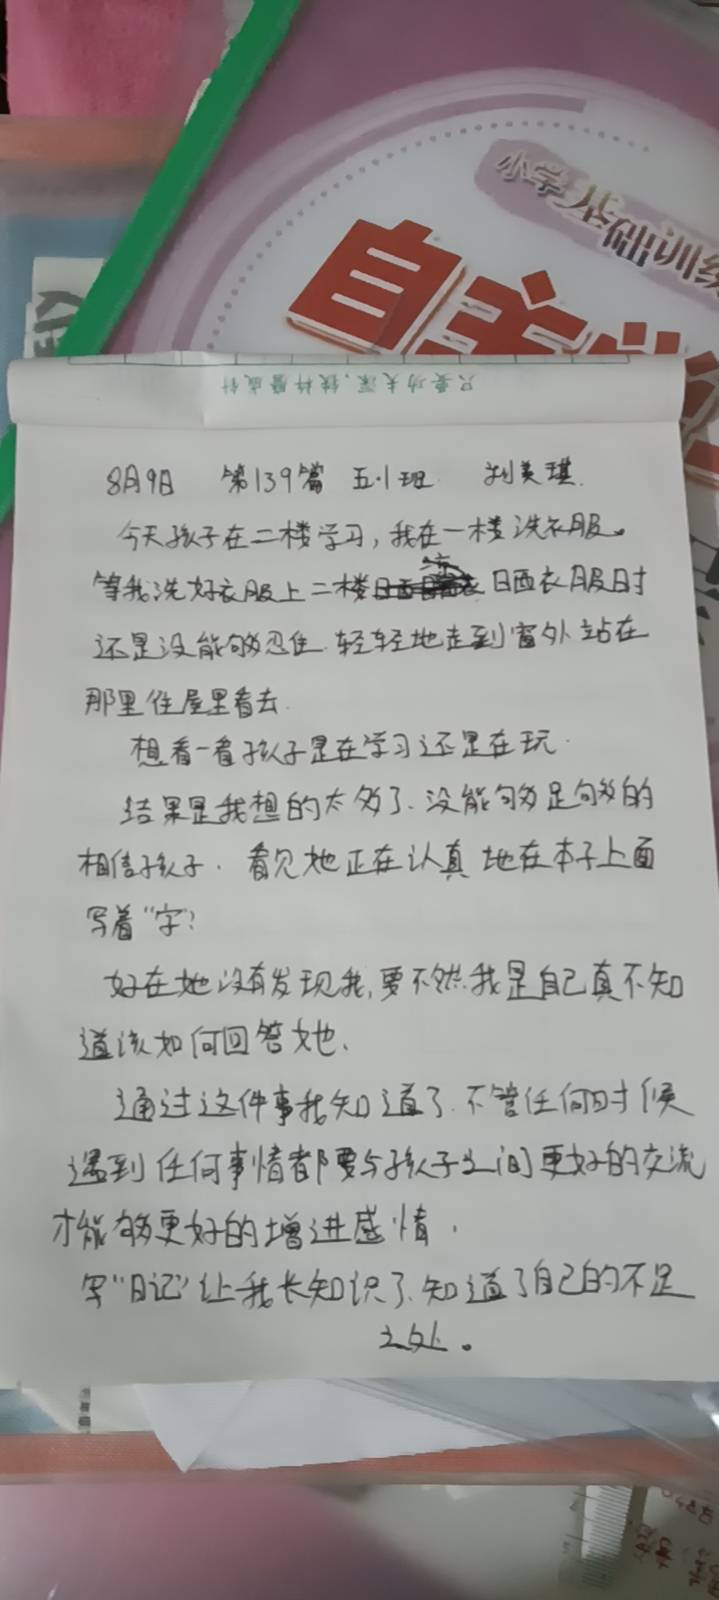 小学基础训练
自主学
只要功夫深,铁杵磨成针
8月9日 第139篇 五.1班 刘美琪.
今天孩子在二楼学习,我在一楼洗衣服。
等我洗好衣服上二楼晒衣服时
还是没能够忍住.轻轻地走到窗外站在
那里往屋里看去.
想看一看孩子是在学习还是在玩.
结果是我想的太多了、没能够足够的
相信孩子.看见她正在认真地在本子上面
写着“字”?
好在她没有发现我,要不然我是自己真不知
道该如何回答她、
通过这件事我知道了.不管任何时候
遇到任何事情都要与孩子之间更好的交流
才能够更好的增进感情.
写“日记”让我长知识了、知道了自己的不足
之处。